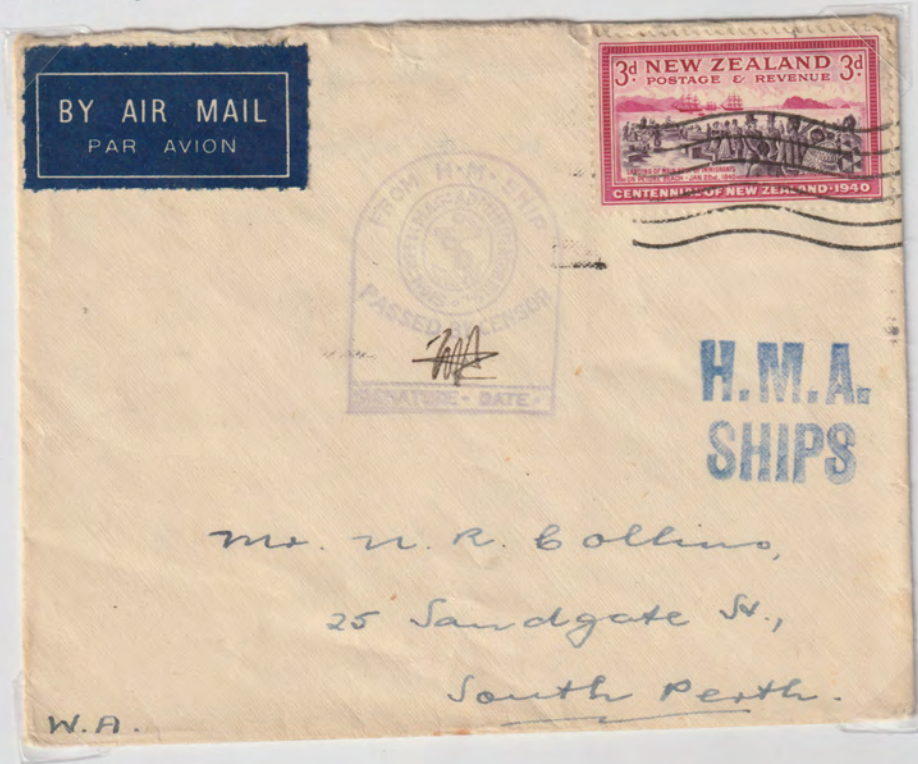 BY AIR MAIL
PAR AVION
3d NEW ZEALAND 3d
POSTAGE & REVENUE
CENTENNIAL OF NEW ZEALAND·1940
FROM H·M·SHIP
PASSED BY CENSOR
SIGNATURE · DATE ·
H.M.A.
SHIPS
Mr. N. R. Collins,
25 Sandgate St.,
South Perth.
W.A.